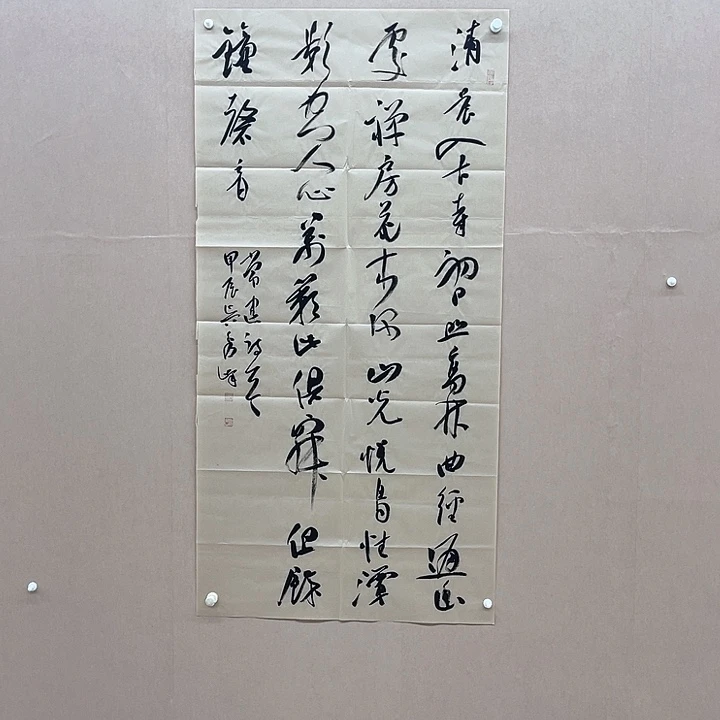 清晨入古寺初日照高林曲徑通幽
處禪房花木深山光悅鳥性潭
影空人心萬籟此俱寂但餘
鐘磬音
常建詩一首
甲辰